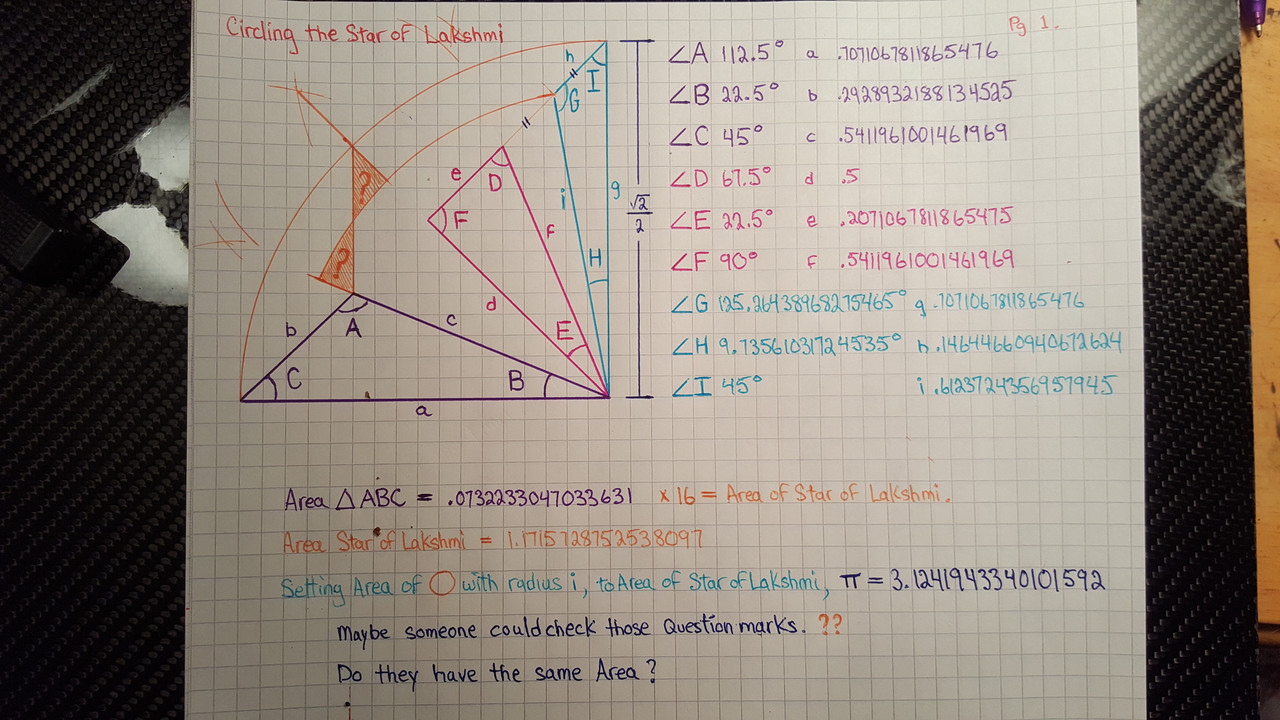 Circling the Star of Lakshmi
Pg 1.
∠A 112.5° a .707106781865476
∠B 22.5° b .2928932188134525
∠C 45° c .541196100146969
∠D 67.5° d .5
∠E 22.5° e .2071067811865475
∠F 90° F .5411961001461969
∠G 125.26438968275465° g .7071067811865476
∠H 9.73561031724535° h .1464466094067 2624
∠I 45° i .6123724356957945
h
I
G
e
D
?
g
√2
2
F
i
f
H
?
d
b
A
c
E
C
B
a
Area △ABC = .0732233047033631 x 16 = Area of Star of Lakshmi.
Area Star of Lakshmi = 1.1715728752538097
Setting Area of ◯ with radius i, to Area of Star of Lakshmi, π = 3.1241943340101592
Maybe someone could check those Question marks. ??
Do they have the same Area?